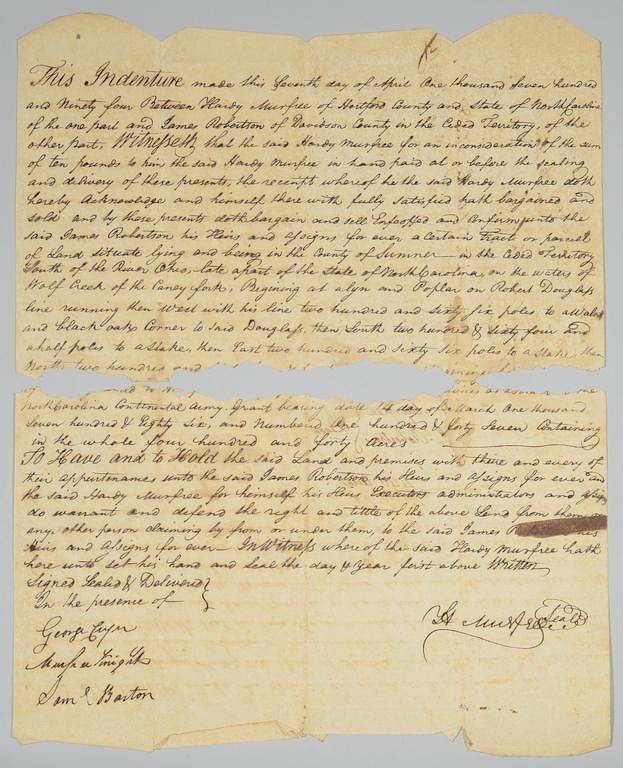 This Indenture made this Seventh day of April One thousand Seven hundred
and Ninety four Between Hardy Murfree of Hertford County and State of North Carolina
of the one part and James Robertson of Davidson County in the Ceded Territory, of the
other part, Witnesseth, that the said Hardy Murfree for an inconsideration of the sum
of ten pounds to him the said Hardy Murfree in hand paid at or before the sealing
and delivery of these presents, the receipt whereof he the said Hardy Murfree doth
hereby Acknowledge and himself there with fully satisfied hath bargained and
sold and by these presents doth bargain and sell Enfeoffed and Confirm unto the
said James Robertson his Heirs and assigns for ever a Certain Tract or parcel
of Land situate lying and being in the County of Sumner in the Ceded Territory
South of the River Ohio, late a part of the State of North Carolina, on the waters of
Wolf Creek of the Caney fork, Begining at a lyn and Poplar on Robert Douglass
line running then West with his line two hundred and sixty six poles to a Walnut
and black oak Corner to said Douglass, then South two hundred & Sixty four and
a half poles to a Stake, then East two hundred and sixty six poles to a Stake, then
North two hundred and
North Carolina Continental Army Grant bearing date 14 day of March One thousand
Seven hundred & Eighty Six, and Numbered One hundred & forty Seven Containing
in the whole four hundred and forty Acres
To Have and to Hold the said Land and premises with there and every of
their appurtenames unto the said James Robertson his Heirs and assigns for ever and
the said Hardy Murfree for himself his Heirs Executors administrators and assigns
do warrant and defend the right and tittle of the above Land from them or
any, other person claiming by from or under them, to the said James his
Heirs and Assigns for ever In Witness where of the said Hardy Murfree hath
here unto set his hand and Seal the day & year first above Written
Signed Sealed & Delivered
In the presence of
H Murfree Seal
George
Murfree Knight
Saml Barton